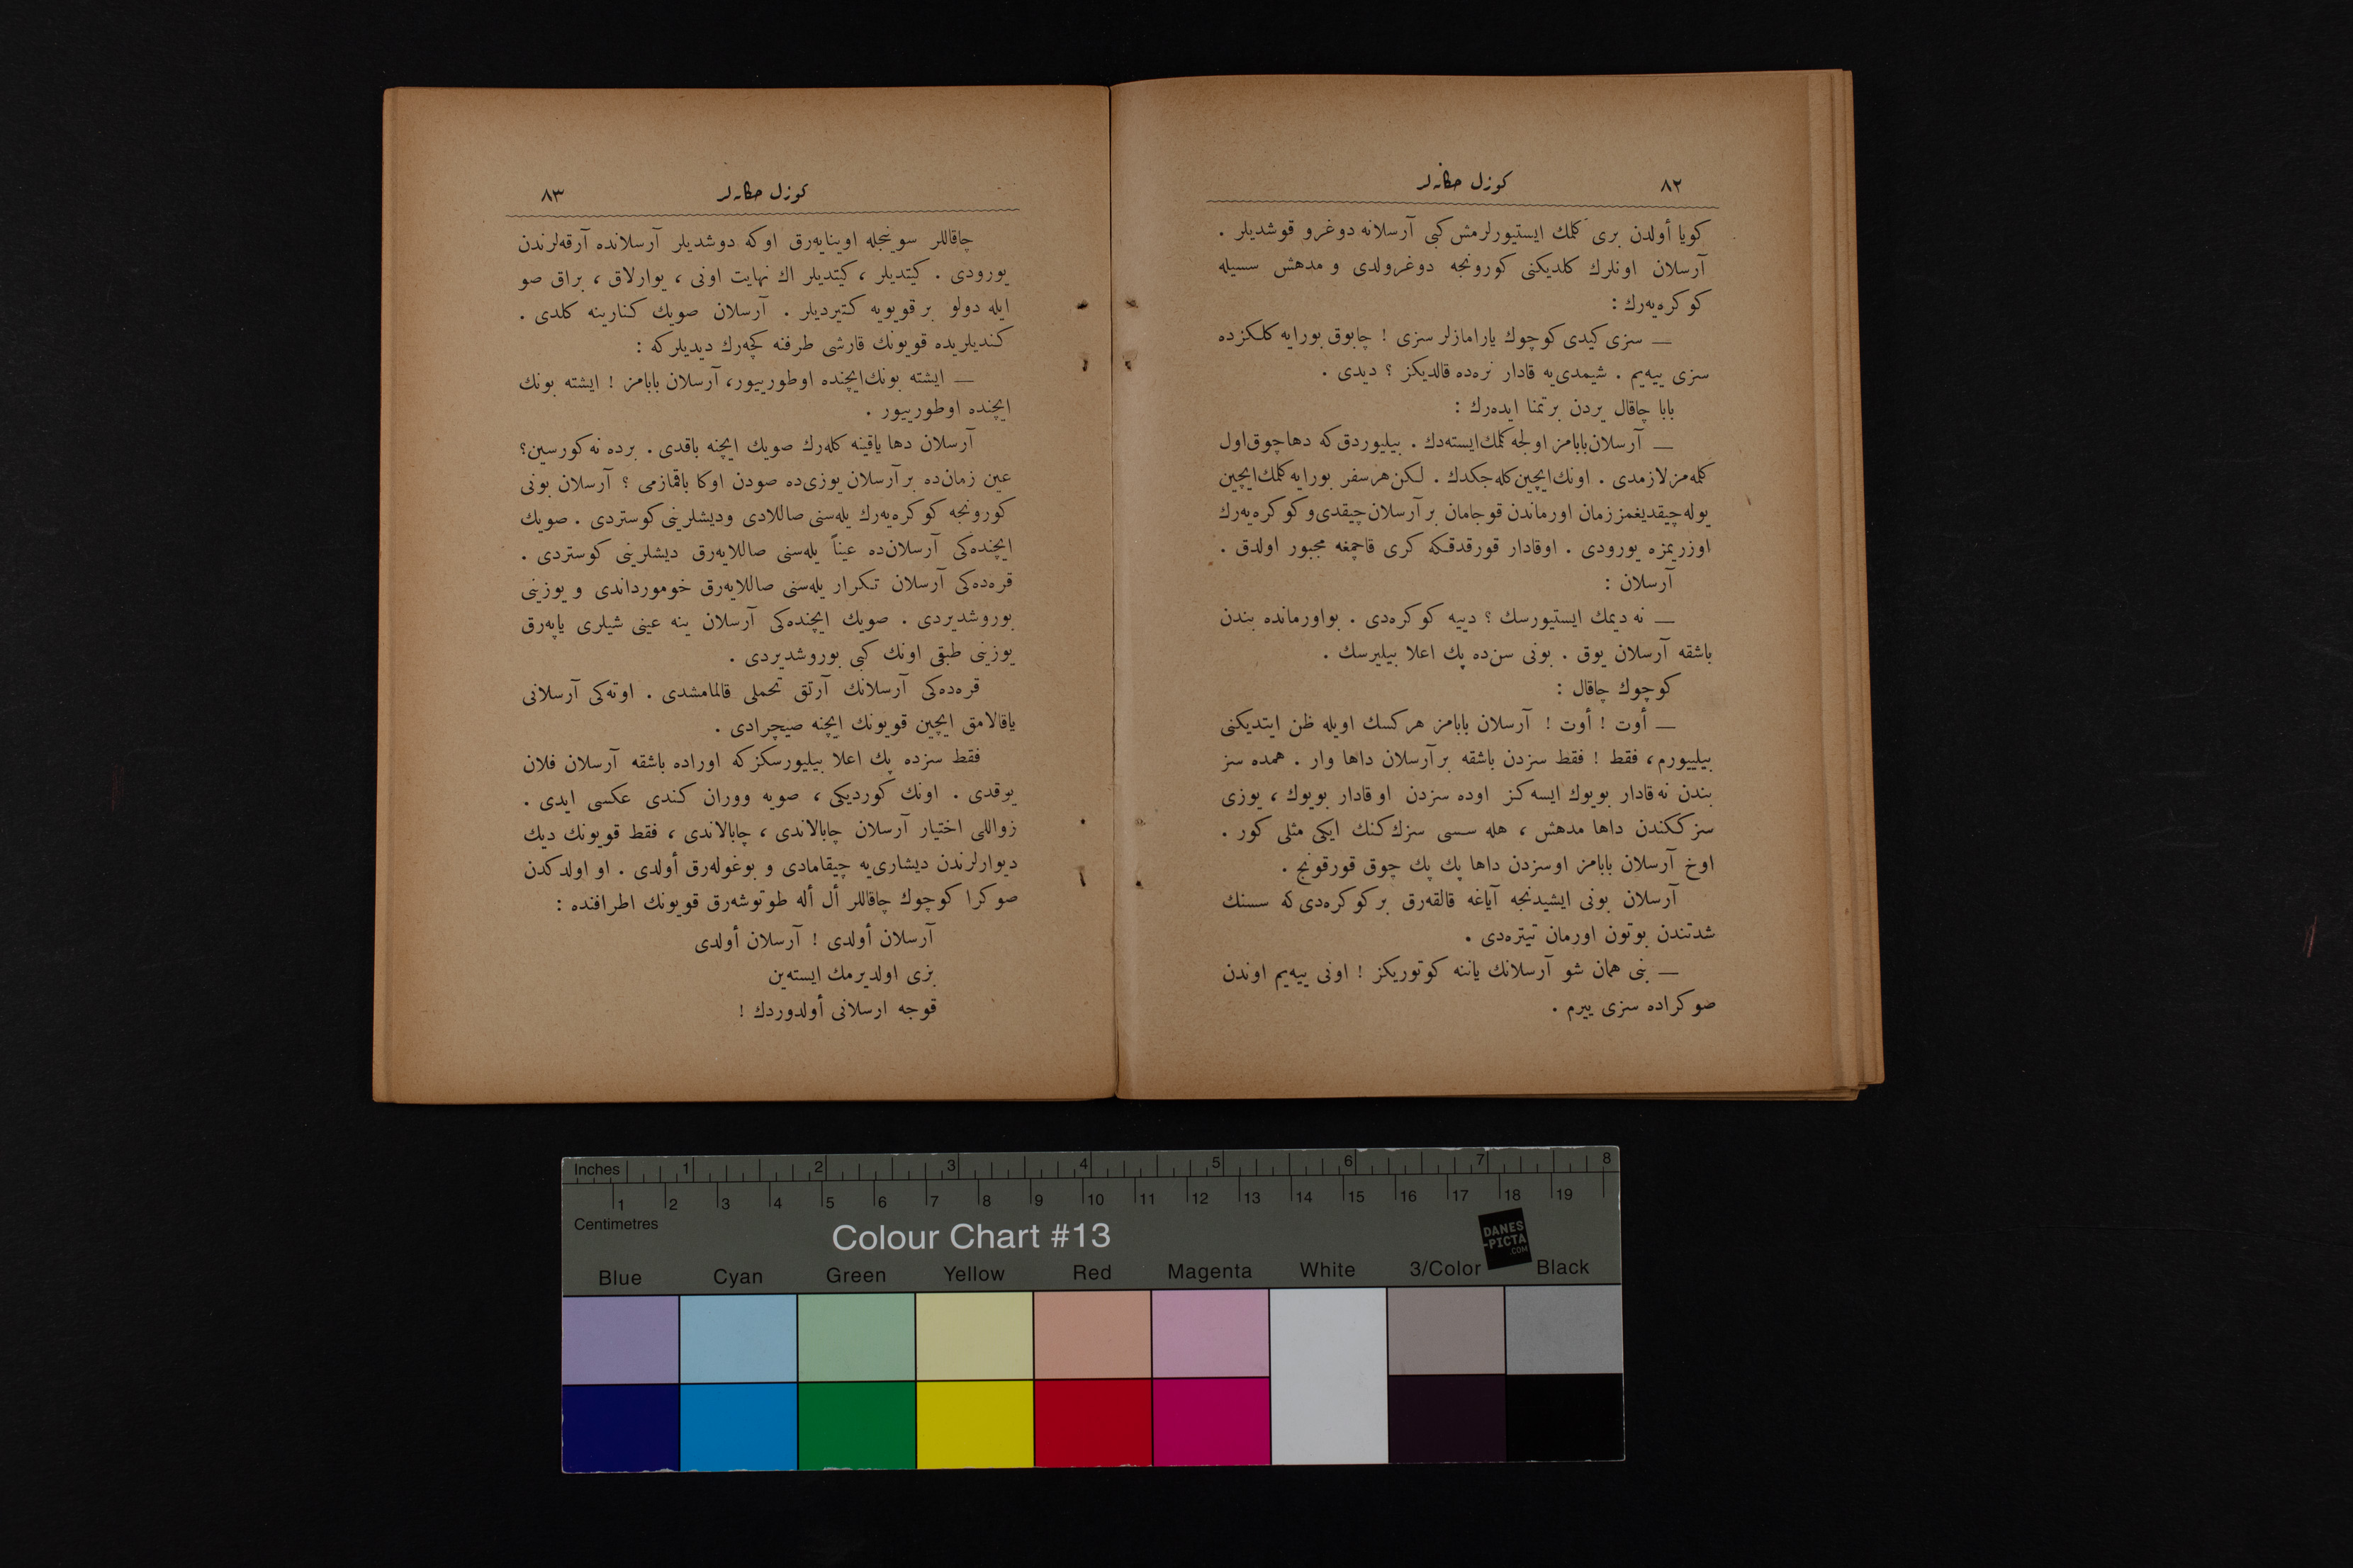 ٨٢
كوزل حكايه‌لر
كويا أولدن برى كلمك ايستيورلرمش كبى آرسلانه دوغرو قوشديلر .
آرسلان اونلرك كلديكنى كورونجه دوغرولدى و مدهش سسيله
كوكره‌يه‌رك :
— سزى كيدى كوچوك يارامازلر سزى ! چابوق بورايه كلكزده
سزى ييه‌يم . شيمدى‌يه قادار نره‌ده قالديكز ؟ ديدى .
بابا چاقال يردن برتمنا ايده‌رك :
— آرسلان بابامز اولجه كلمك ايسته‌دك . بيليوردق كه دها چوق اول
كلمه‌مز لازمدى . اونك ايچين كله‌جكدك . لكن هر سفر بورايه كلمك ايچين
يوله چيقديغمز زمان اورماندن قوجامان بر آرسلان چيقدى و كوكره‌يه‌رك
اوزريمزه يورودى . اوقادار قورقدقكه كرى قاچمغه مجبور اولدق .
آرسلان :
— نه ديمك ايستيورسك ؟ دييه كوكره‌دى . بواورمانده بندن
باشقه آرسلان يوق . بونى سن‌ده پك اعلا بيليرسك .
كوچوك چاقال :
— أوت ! أوت ! آرسلان بابامز هركسك اويله ظن ايتديكنى
بيلييورم ، فقط ! فقط سزدن باشقه برآرسلان داها وار . همده سز
بندن نه قادار بويوك ايسه‌كز اوده سزدن اوقادار بويوك ، يوزى
سزككندن داها مدهش ، هله سسى سزك‌كنك ايكى مثلى كور .
اوخ آرسلان بابامز اوسزدن داها پك پك چوق قورقونج .
آرسلان بونى ايشيدنجه آياغه قالقه‌رق بر كوكره‌دى كه سسنك
شدتندن بوتون اورمان تيتره‌دى .
— بنى همان شو آرسلانك ياننه كوتوريكز ! اونى ييه‌يم اوندن
صوكراده سزى ييرم .
كوزل حكايه‌لر
٨٣
چاقاللر سوينجله اوينايه‌رق اوكه دوشديلر آرسلانده آرقه‌لرندن
يورودى . كيتديلر ، كيتديلر اك نهايت اونى ، يوارلاق ، براق صو
ايله دولو بر قويويه كتيرديلر . آرسلان صويك كنارينه كلدى .
كنديلريده قويونك قارشى طرفنه كچه‌رك ديديلركه :
— ايشته بونك ايچنده اوطورييور، آرسلان بابامز ! ايشته بونك
ايچنده اوطورييور .
آرسلان دها ياقينه كله‌رك صويك ايچنه باقدى . برده نه كورسين؟
عين زمان‌ده بر آرسلان يوزى‌ده صودن اوكا باقمازمى ؟ آرسلان بونى
كورونجه كوكره‌يه‌رك يله‌سنى صاللادى وديشلرينى كوستردى . صويك
ايچنده‌كى آرسلان‌ده عيناً يله‌سنى صاللايه‌رق ديشلرينى كوستردى .
قره‌ده‌كى آرسلان تكرار يله‌سنى صاللايه‌رق خومورداندى و يوزينى
بوروشديردى . صويك ايچنده‌كى آرسلان ينه عينى شيلرى ياپه‌رق
يوزينى طبقى اونك كبى بوروشديردى .
قره‌ده‌كى آرسلانك آرتق تحملى قالمامشدى . اوته‌كى آرسلانى
ياقالامق ايچين قويونك ايچنه صيچرادى .
فقط سزده پك اعلا بيليورسكزكه اوراده باشقه آرسلان فلان
يوقدى . اونك كورديكى ، صويه ووران كندى عكسى ايدى .
زواللى اختيار آرسلان چابالاندى ، چابالاندى ، فقط قويونك ديك
ديوارلرندن ديشارى‌يه چيقامادى و بوغوله‌رق أولدى . او اولدكدن
صوكرا كوچوك چاقاللر أل أله طوتوشه‌رق قويونك اطرافنده :
آرسلان أولدى ! آرسلان أولدى
بزى اولديرمك ايسته‌ين
قوجه ارسلانى أولدوردك !
Inches 1 2 3 4 5 6 7 8
1 2 3 4 5 6 7 8 9 10 11 12 13 14 15 16 17 18 19
Centimetres
Colour Chart #13
DANES
-PICTA
.COM
Blue Cyan Green Yellow Red Magenta White 3/Color Black